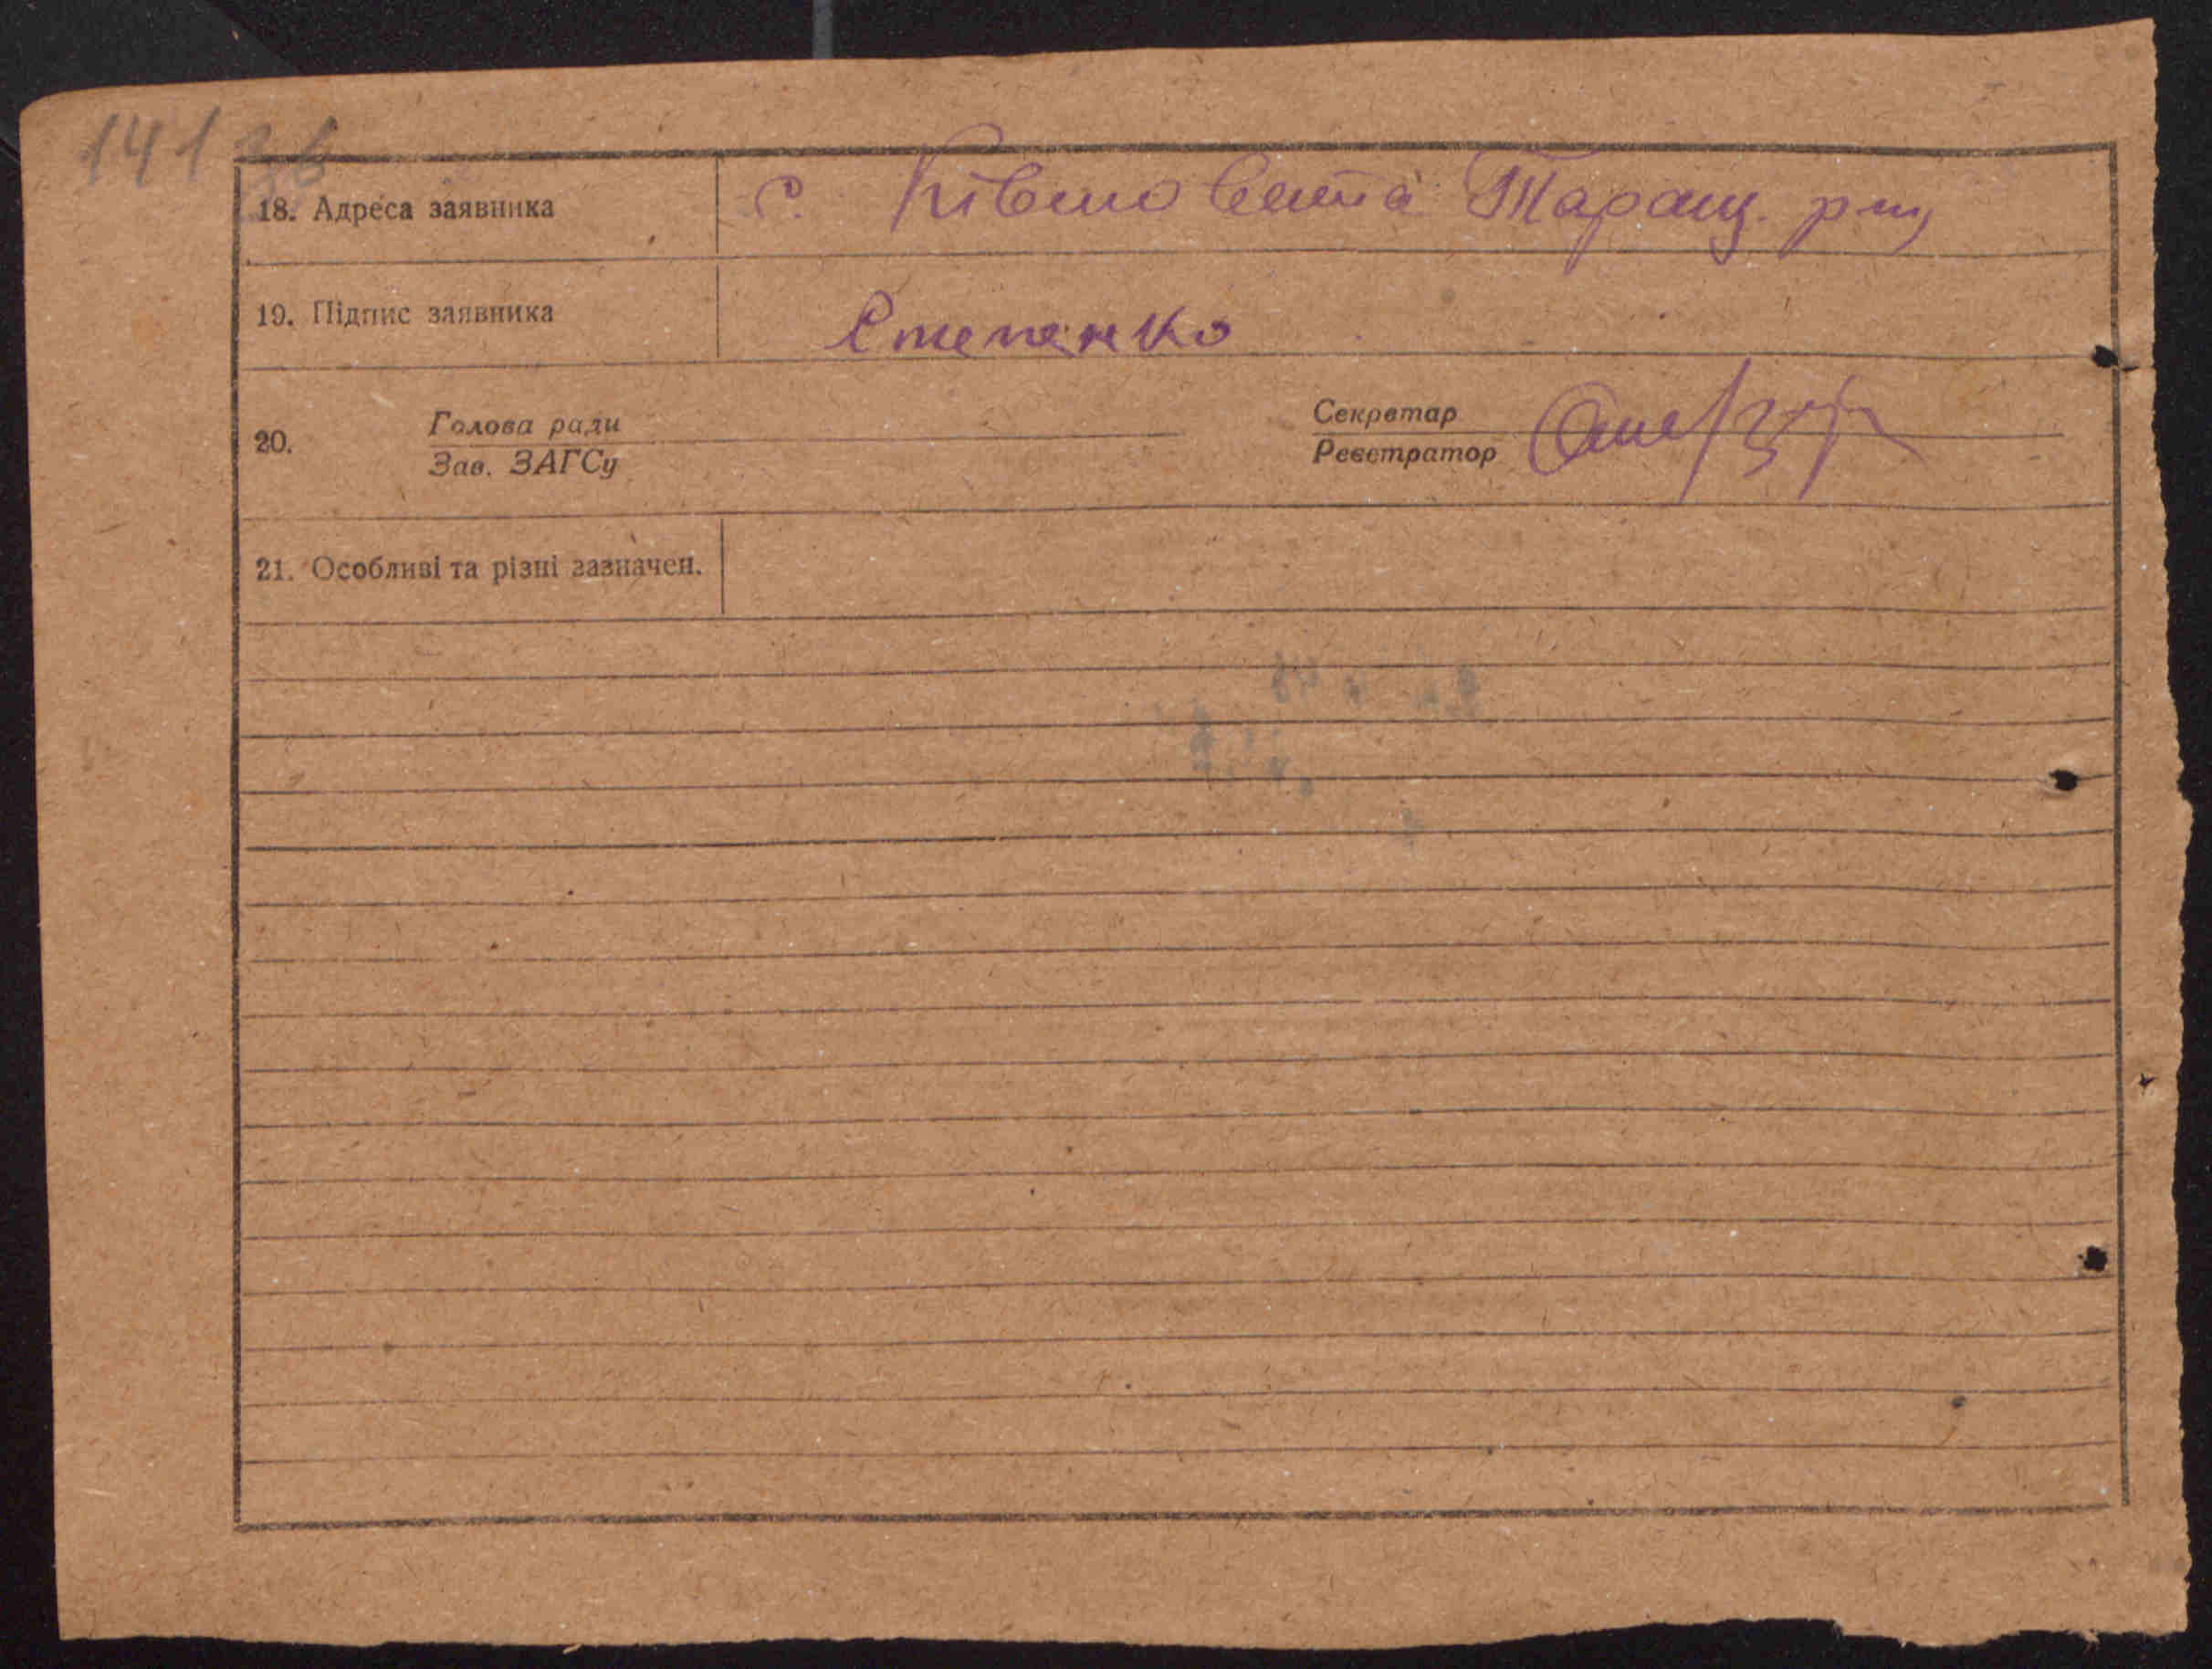 141 зв
18. Адреса заявника с. Ківшовата Таращ. р-ну
19. Підпис заявника Степенко
20. Голова ради Секретар
Зав. ЗАГСу Реєстратор
21. Особливі та різні зазначен.